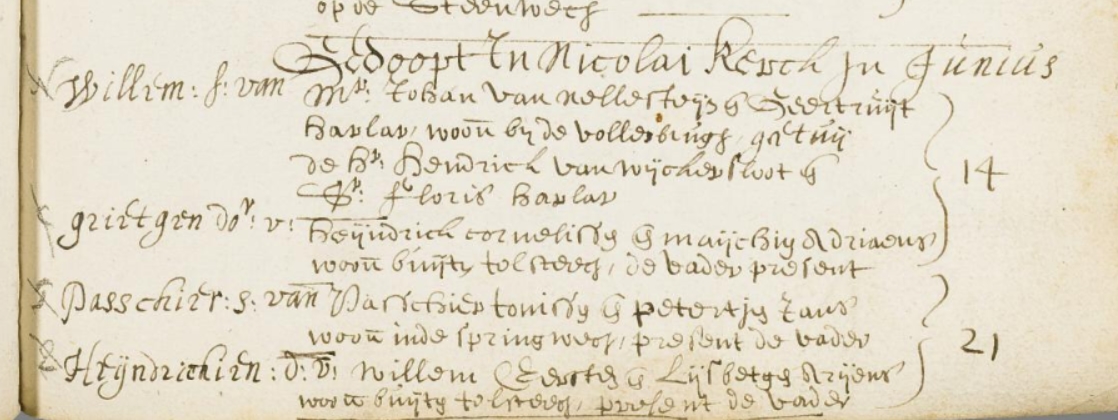 op de Steenwech
Gedoopt In Nicolai Kerck In Junius
Willem: s: van Mr: Johan van nellesteijn en Geertruijt
harlar, woon bij de vollersbrugh, get uij
de hr: Hendrick van wijckersloot en
Sr: floris harlar
14
grietgen dor: v: heijndrick cornelissen en maijchin Adriaens
woon buijten tolsteech, de vader present
Passchier: s: van Passchier tonissen en petertjen Jans
woon inde springwech, present de vader
21
Heijndrickien: d: v: willem Eersten en Lijsbetgen Arijens
woon buijten tolsteech, present de vader